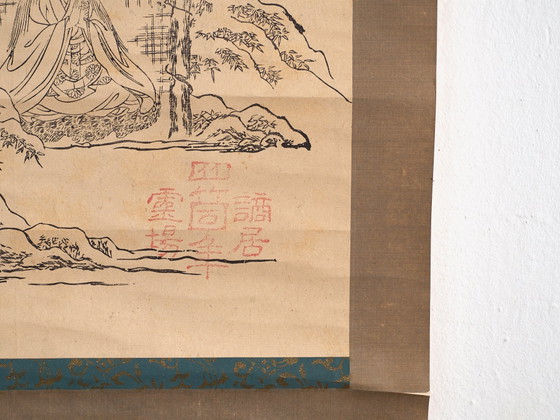 謫居
四箇年
靈場